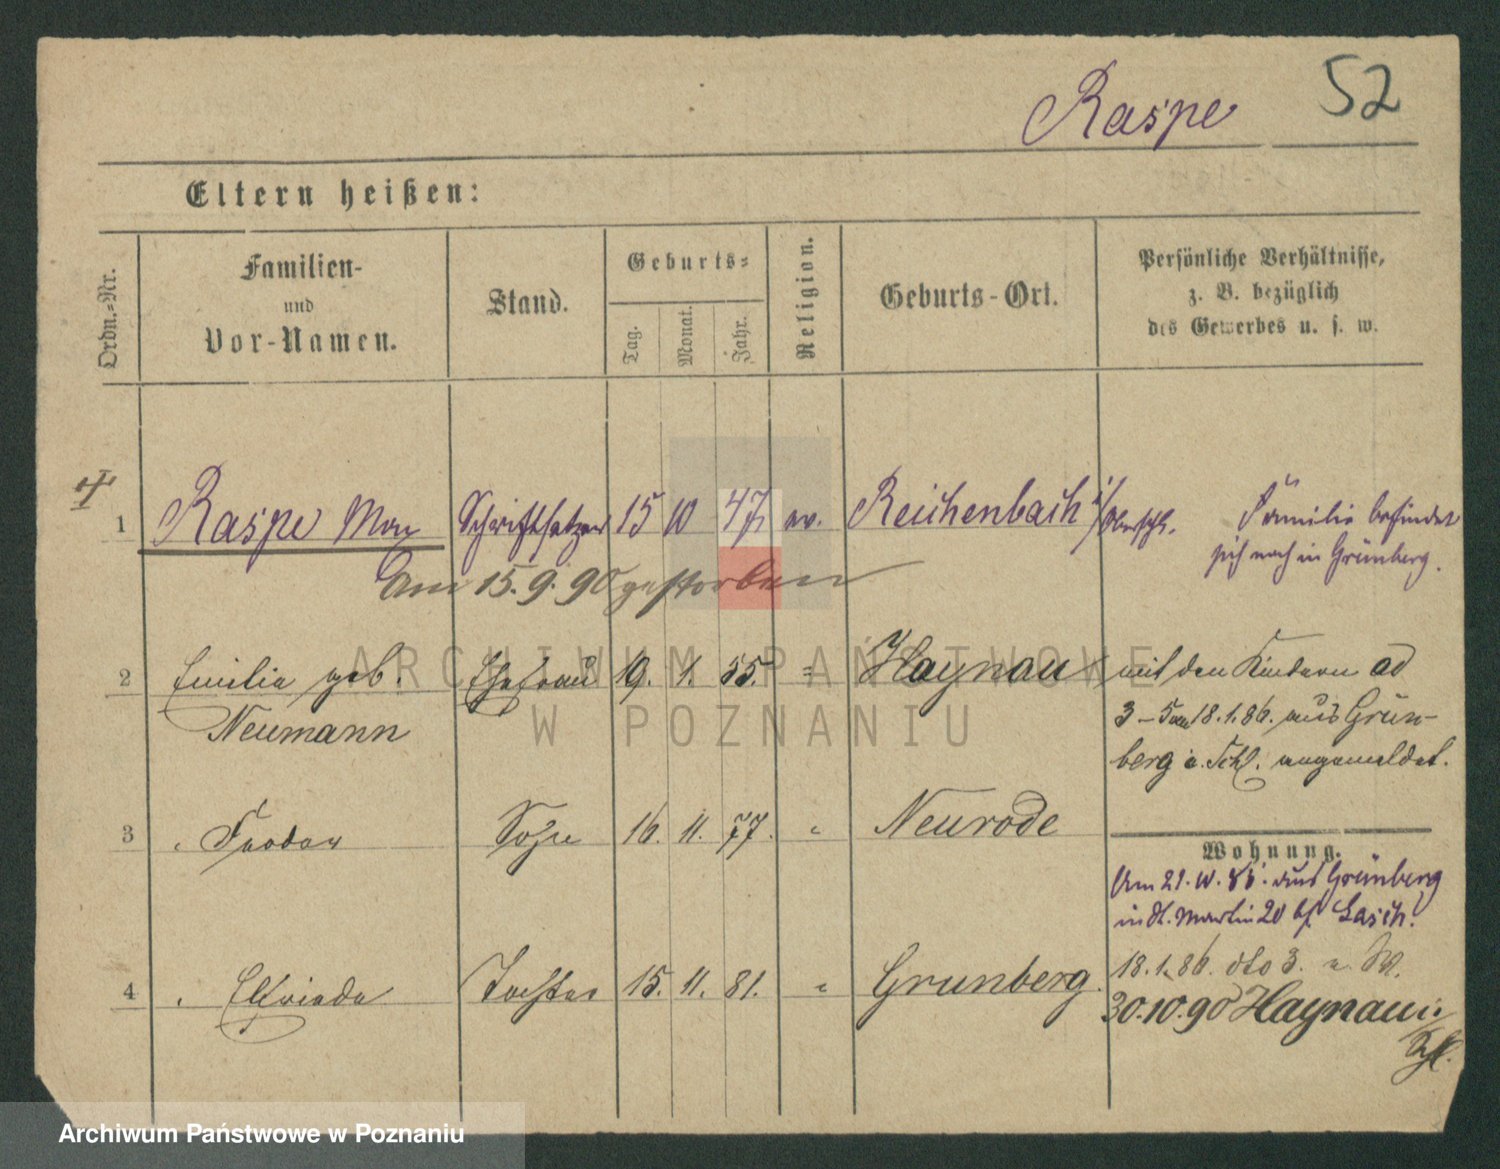 52
Raspe
Eltern heißen:
Ordn.-Nr.
Familien-
und
Vor-Namen.
Stand.
Geburts-
Tag.
Monat.
Jahr.
Religion.
Geburts-Ort.
Persönliche Verhältnisse,
z. B. bezüglich
des Gewerbes u. s. w.
1 Raspe Max Schriftsetzer 15 10 47 ev. Reichenbach i/ Familie befindet
sich noch in Grünberg.
Am 15.9.90 gestorben
2 Emilie geb. Ehefrau 19. 1. 55. " Haynau mit den Kindern ad
Neumann 3-5 am 18.1.86. aus Grün-
berg i. Schl. angemeldet.
3 " Feodor Sohn 16. 11. 77. " Neurode
Wohnung.
Am 21. 10. 85. aus Grünberg
in St. Martin 20 bei Lasch.
4 " Elfriede Tochter 15. 11. 81. " Grunberg. 18.1.86. dto 3. a. W.
30.10.90 Haynau i.
Schl.
ARCHIWUM PAŃSTWOWE
W POZNANIU
Archiwum Państwowe w Poznaniu